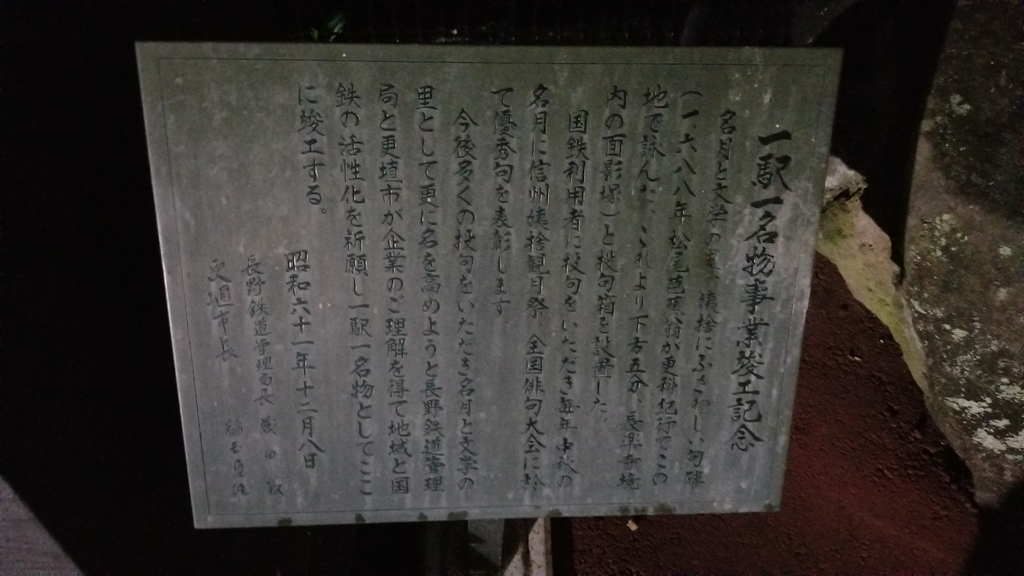 一駅一名物事業竣工記念
名月と文学の里、姨捨にふさわしい句碑
(一六八八年松尾芭蕉翁が更科紀行でこの
地で詠んだ、これより下方五分、長楽寺境
内の面影塚)と投句箱を設置した。
国鉄利用者に投句をいただき毎年中秋の
名月に信州姨捨観月祭、全国俳句大会に於
て優秀句を表彰します
今後多くの投句をいただき名月と文学の
里として更に名を高めようと長野鉄道管理
局と更埴市が企業のご理解を得て地域と国
鉄の活性化を祈願し一駅一名物としてここ
に竣工する。
昭和六十一年十二月八日
長野鉄道管理局長
更埴市長